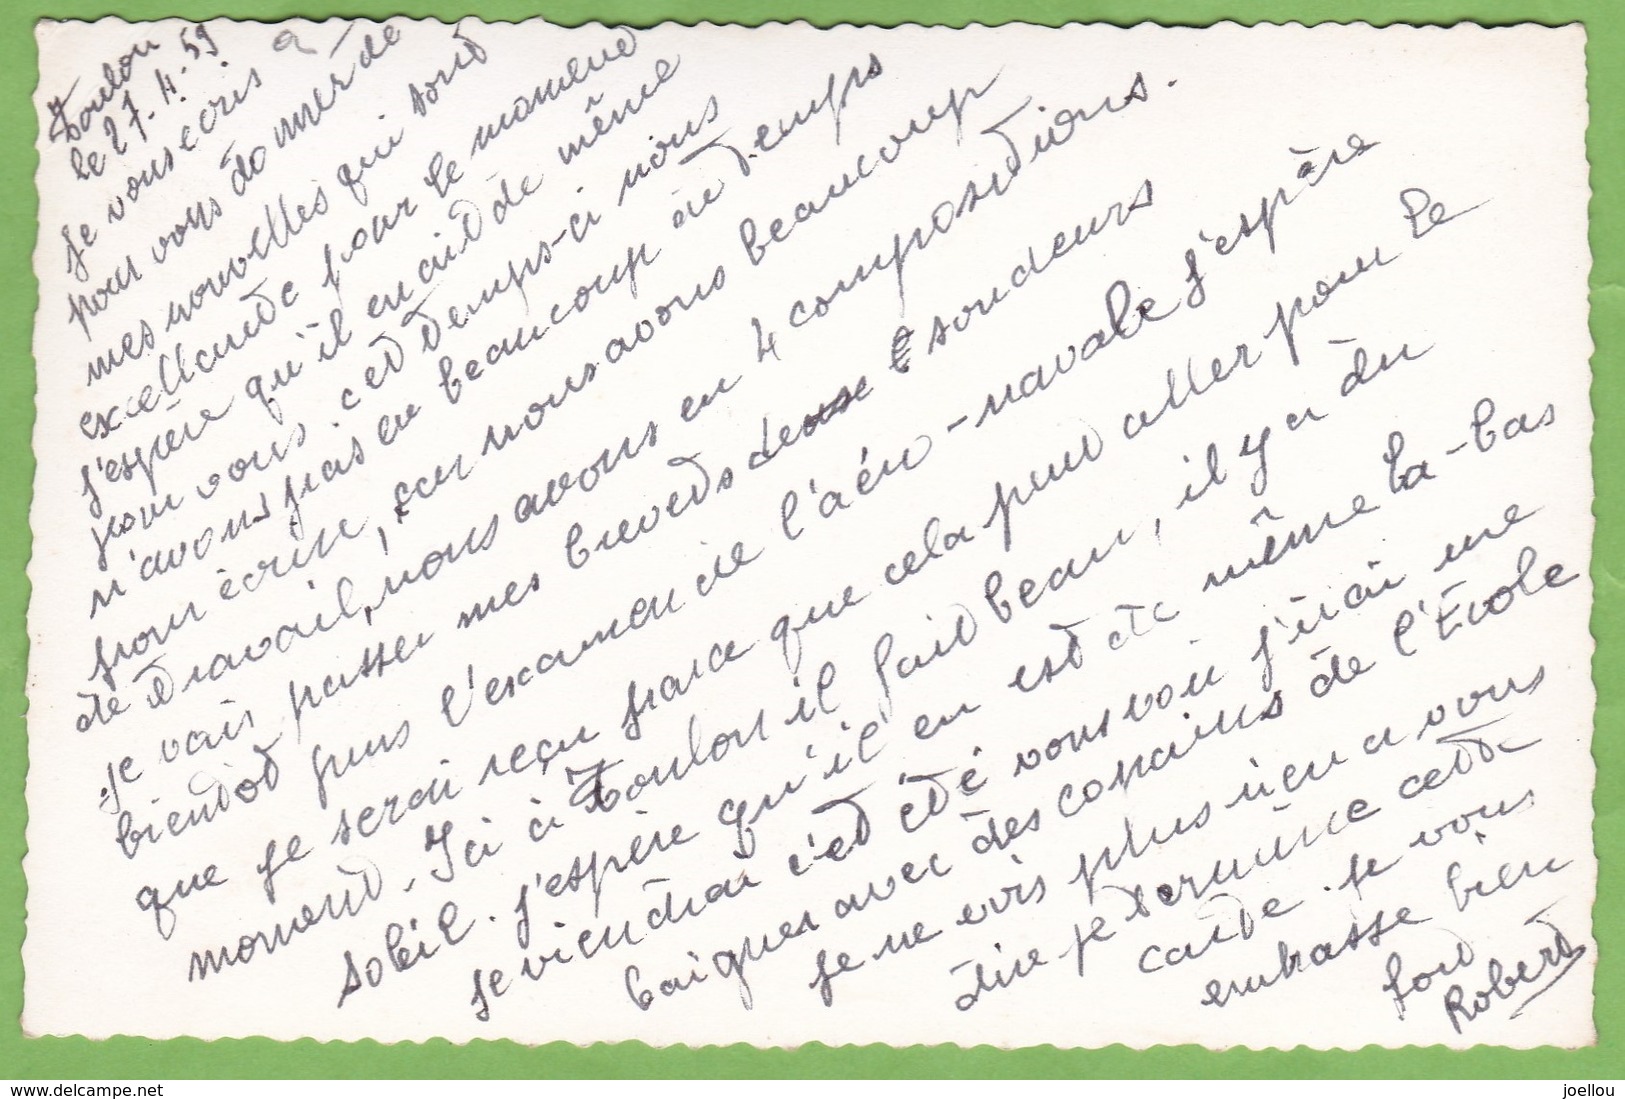 Toulon
le 27.4.59
je vous écris
pour vous donner de
mes nouvelles qui sont
excellante pour le moment
j'espère qu'il en ait de même
pour vous. cet temps-ci nous
n'avons pas eu beaucoup du temps
pour écrire, car nous avons beaucoup
de travail, nous avons eu 4 compositions.
je vais passer mes brevets de sondeurs
bientôt puis l'examen de l'aéro-navale j'espère
que je serai reçu parce que cela peut aller pour le
moment. Ici à Toulon il fait beau, il y a du
soleil. j'espère qu'il en est de même la-bas
je viendrai cet été vous voir j'irai me
baigner avec des copains de l'École
je ne vois plus rien a vous
dire je termine cette
carte. je vous
embrasse bien
fort
Robert
joellou